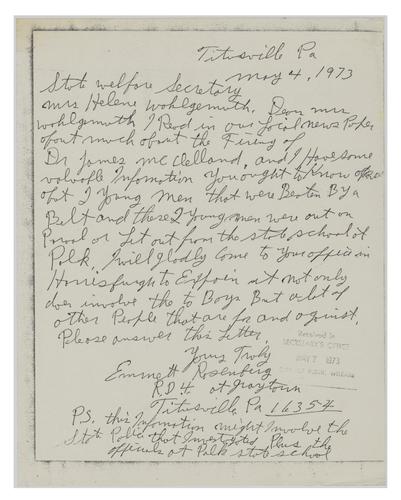 Titusville Pa
May 4, 1973
State welfare Secretary
Mrs Helene Wohlgemuth. Dear Mrs
Wohlgemuth I Read in our Local News Paper
about much about the Firing of
Dr James McClelland, and I Have some
valuable Infomation You ought to Know
abt 2 Young Men that were Beaten By a
Belt and these 2 Young men were out on
Parol or Let out from the state school at
Polk. I will gladly Come to Your office in
Harrisburgh to Explain it not only
does involve the to Boys But a lot of
other People that are for and against,
Please answer this Letter,
Yours Truly
Emmett Rosenberg
R.D. 4 at Graytown
Titusville, Pa 16354
Received in
SECRETARY'S OFFICE
MAY 7 1973
P.S. this Infomation might Involve the
State Police that Investigated Plus the
officials at Polk state school